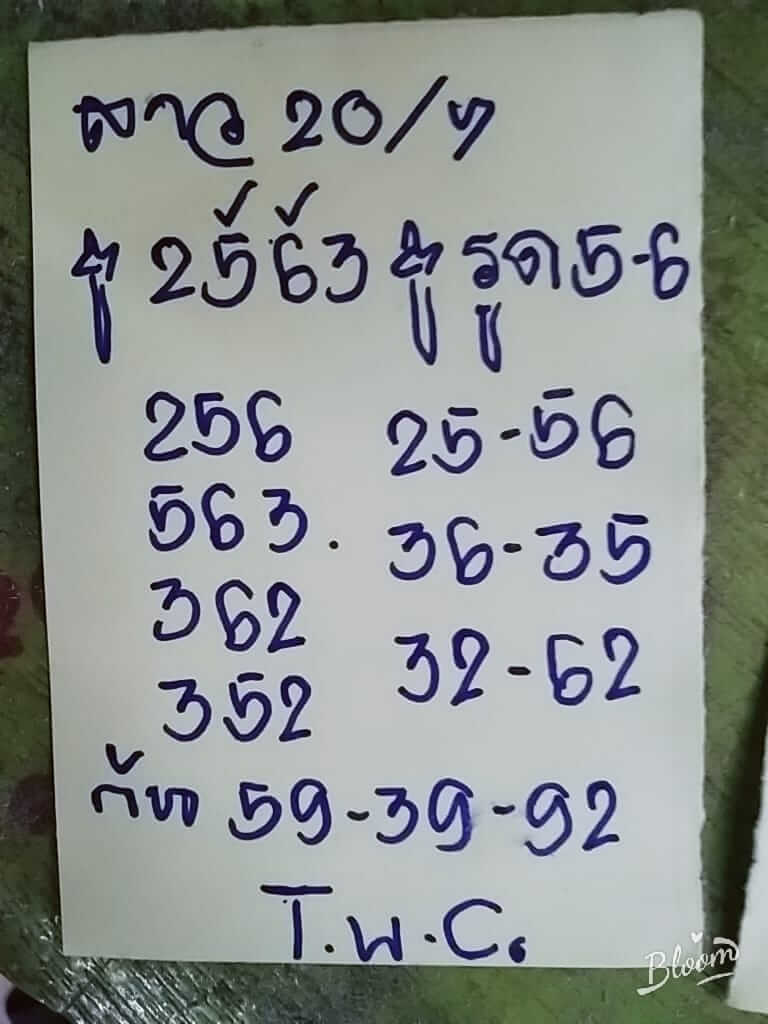 ลาว 20/7
2563 รูด 5-6
256 25-56
563. 36-35
362 32-62
352
กัน 59-39-92
T.พ.C.
Bloom